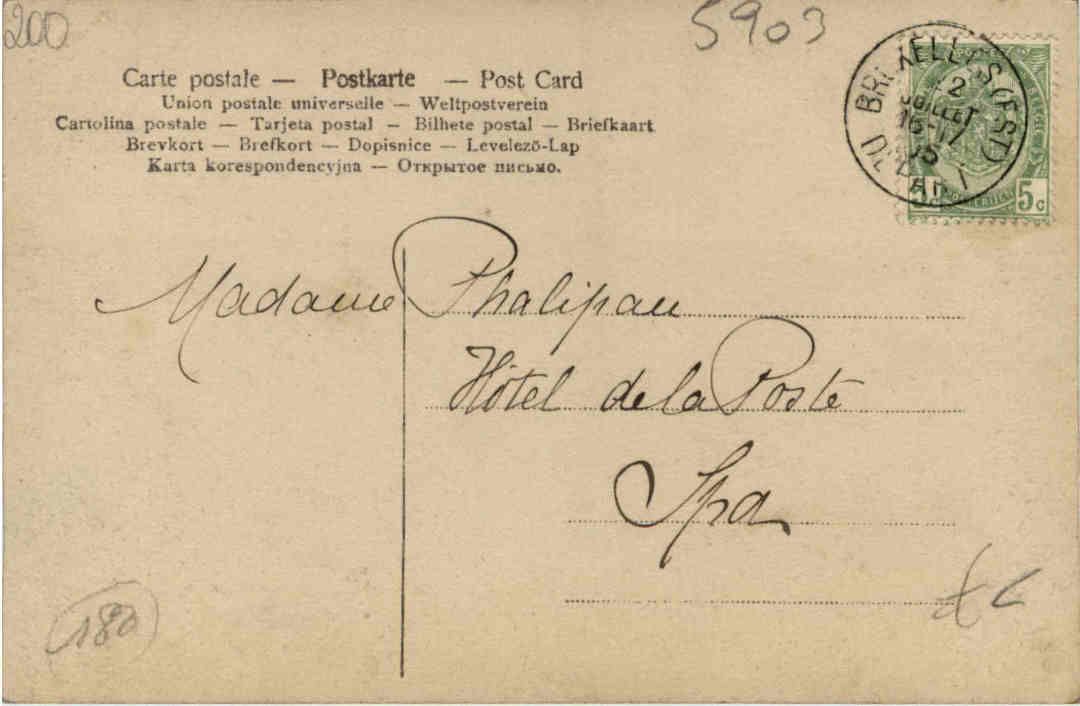 200
5903
Carte postale — Postkarte — Post Card
Union postale universelle — Weltpostverein
Cartolina postale — Tarjeta postal — Bilhete postal — Briefkaart
Brevkort — Brefkort — Dopisnice — Levelező-Lap
Karta korespondencyjna — Открытое письмо.
BRUXELLES (EST)
2
JUILLET
16-17
DEPART
5 C
Madame Phalipau
Hôtel de la Poste
Spa
180